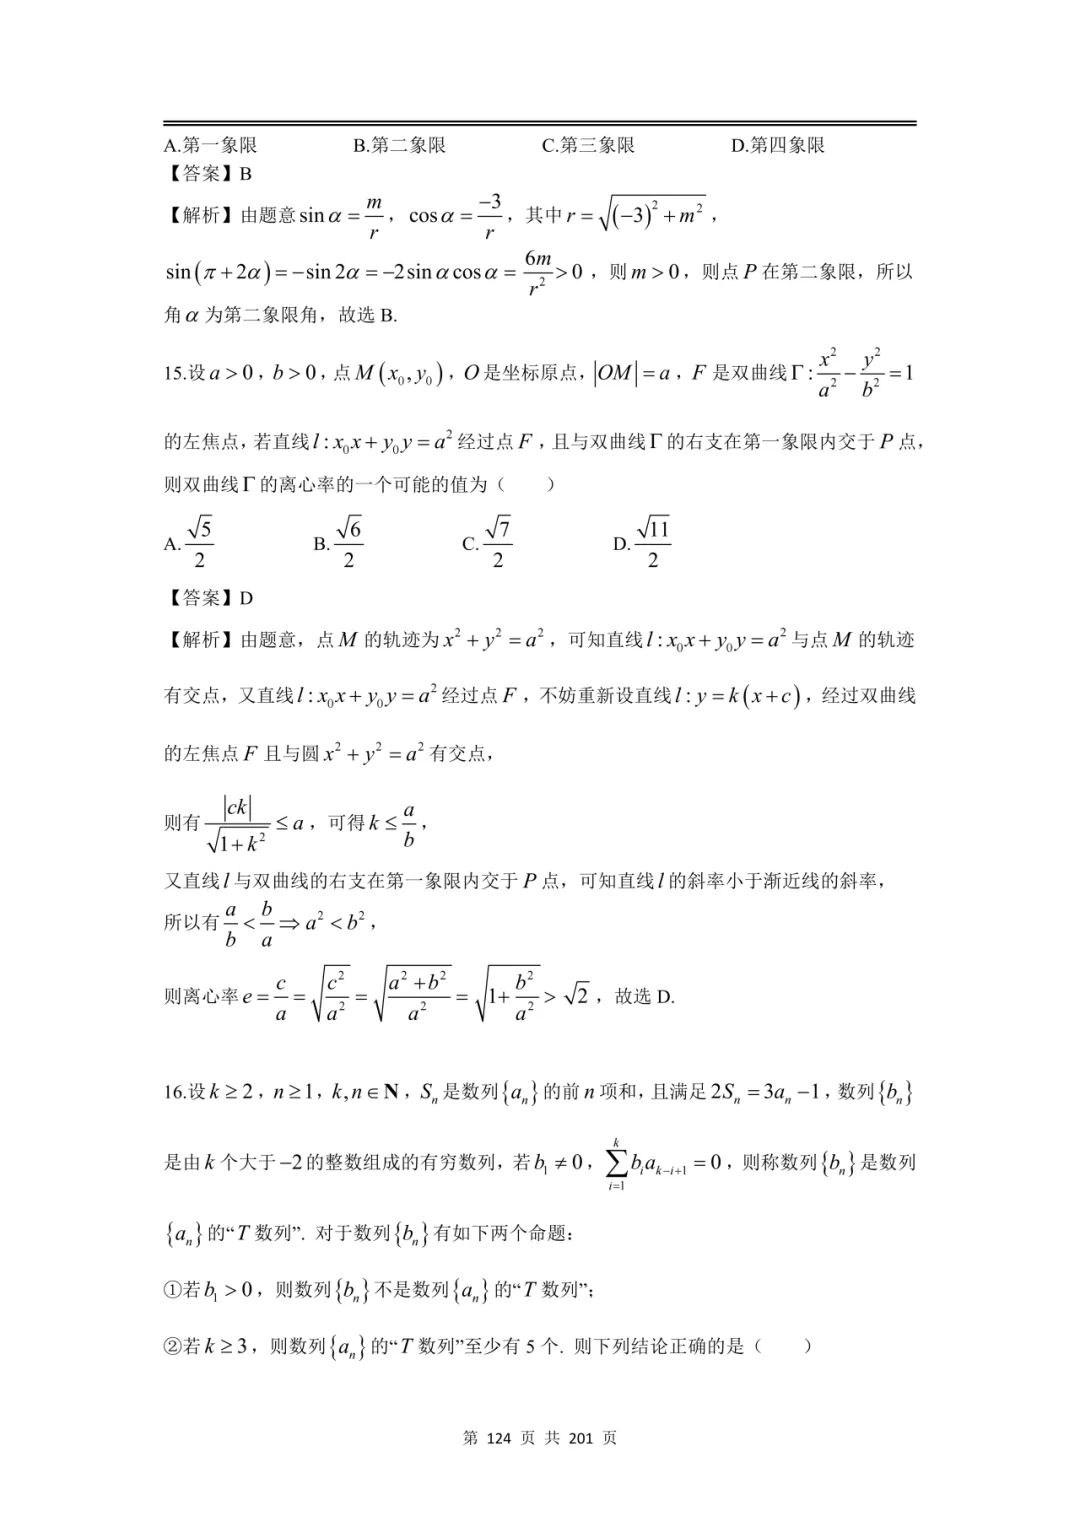 A.第一象限 B.第二象限 C.第三象限 D.第四象限
【答案】B
【解析】由题意 $\sin\alpha=\frac{m}{r}$，$\cos\alpha=\frac{-3}{r}$，其中 $r=\sqrt{(-3)^2+m^2}$，
$\sin(\pi+2\alpha)=-\sin2\alpha=-2\sin\alpha\cos\alpha=\frac{6m}{r^2}>0$，则 $m>0$，则点 $P$ 在第二象限，所以
角 $\alpha$ 为第二象限角，故选 B.
15.设 $a>0$，$b>0$，点 $M(x_0,y_0)$，$O$ 是坐标原点，$|OM|=a$，$F$ 是双曲线 $\Gamma:\frac{x^2}{a^2}-\frac{y^2}{b^2}=1$
的左焦点，若直线 $l:x_0x+y_0y=a^2$ 经过点 $F$，且与双曲线 $\Gamma$ 的右支在第一象限内交于 $P$ 点，
则双曲线 $\Gamma$ 的离心率的一个可能的值为（ ）
A.$\frac{\sqrt{5}}{2}$ B.$\frac{\sqrt{6}}{2}$ C.$\frac{\sqrt{7}}{2}$ D.$\frac{\sqrt{11}}{2}$
【答案】D
【解析】由题意，点 $M$ 的轨迹为 $x^2+y^2=a^2$，可知直线 $l:x_0x+y_0y=a^2$ 与点 $M$ 的轨迹
有交点，又直线 $l:x_0x+y_0y=a^2$ 经过点 $F$，不妨重新设直线 $l:y=k(x+c)$，经过双曲线
的左焦点 $F$ 且与圆 $x^2+y^2=a^2$ 有交点，
则有 $\frac{|ck|}{\sqrt{1+k^2}}\leq a$，可得 $k\leq\frac{a}{b}$，
又直线 $l$ 与双曲线的右支在第一象限内交于 $P$ 点，可知直线 $l$ 的斜率小于渐近线的斜率，
所以有 $\frac{a}{b}<\frac{b}{a}\Rightarrow a^2<b^2$，
则离心率 $e=\frac{c}{a}=\sqrt{\frac{c^2}{a^2}}=\sqrt{\frac{a^2+b^2}{a^2}}=\sqrt{1+\frac{b^2}{a^2}}>\sqrt{2}$，故选 D.
16.设 $k\geq2$，$n\geq1$，$k,n\in\mathbf{N}$，$S_n$ 是数列 $\{a_n\}$ 的前 $n$ 项和，且满足 $2S_n=3a_n-1$，数列 $\{b_n\}$
是由 $k$ 个大于 $-2$ 的整数组成的有穷数列，若 $b_1\neq0$，$\sum_{i=1}^{k}b_ia_{k-i+1}=0$，则称数列 $\{b_n\}$ 是数列
$\{a_n\}$ 的“$T$ 数列”. 对于数列 $\{b_n\}$ 有如下两个命题：
①若 $b_1>0$，则数列 $\{b_n\}$ 不是数列 $\{a_n\}$ 的“$T$ 数列”；
②若 $k\geq3$，则数列 $\{a_n\}$ 的“$T$ 数列”至少有 5 个. 则下列结论正确的是（ ）
第 124 页 共 201 页